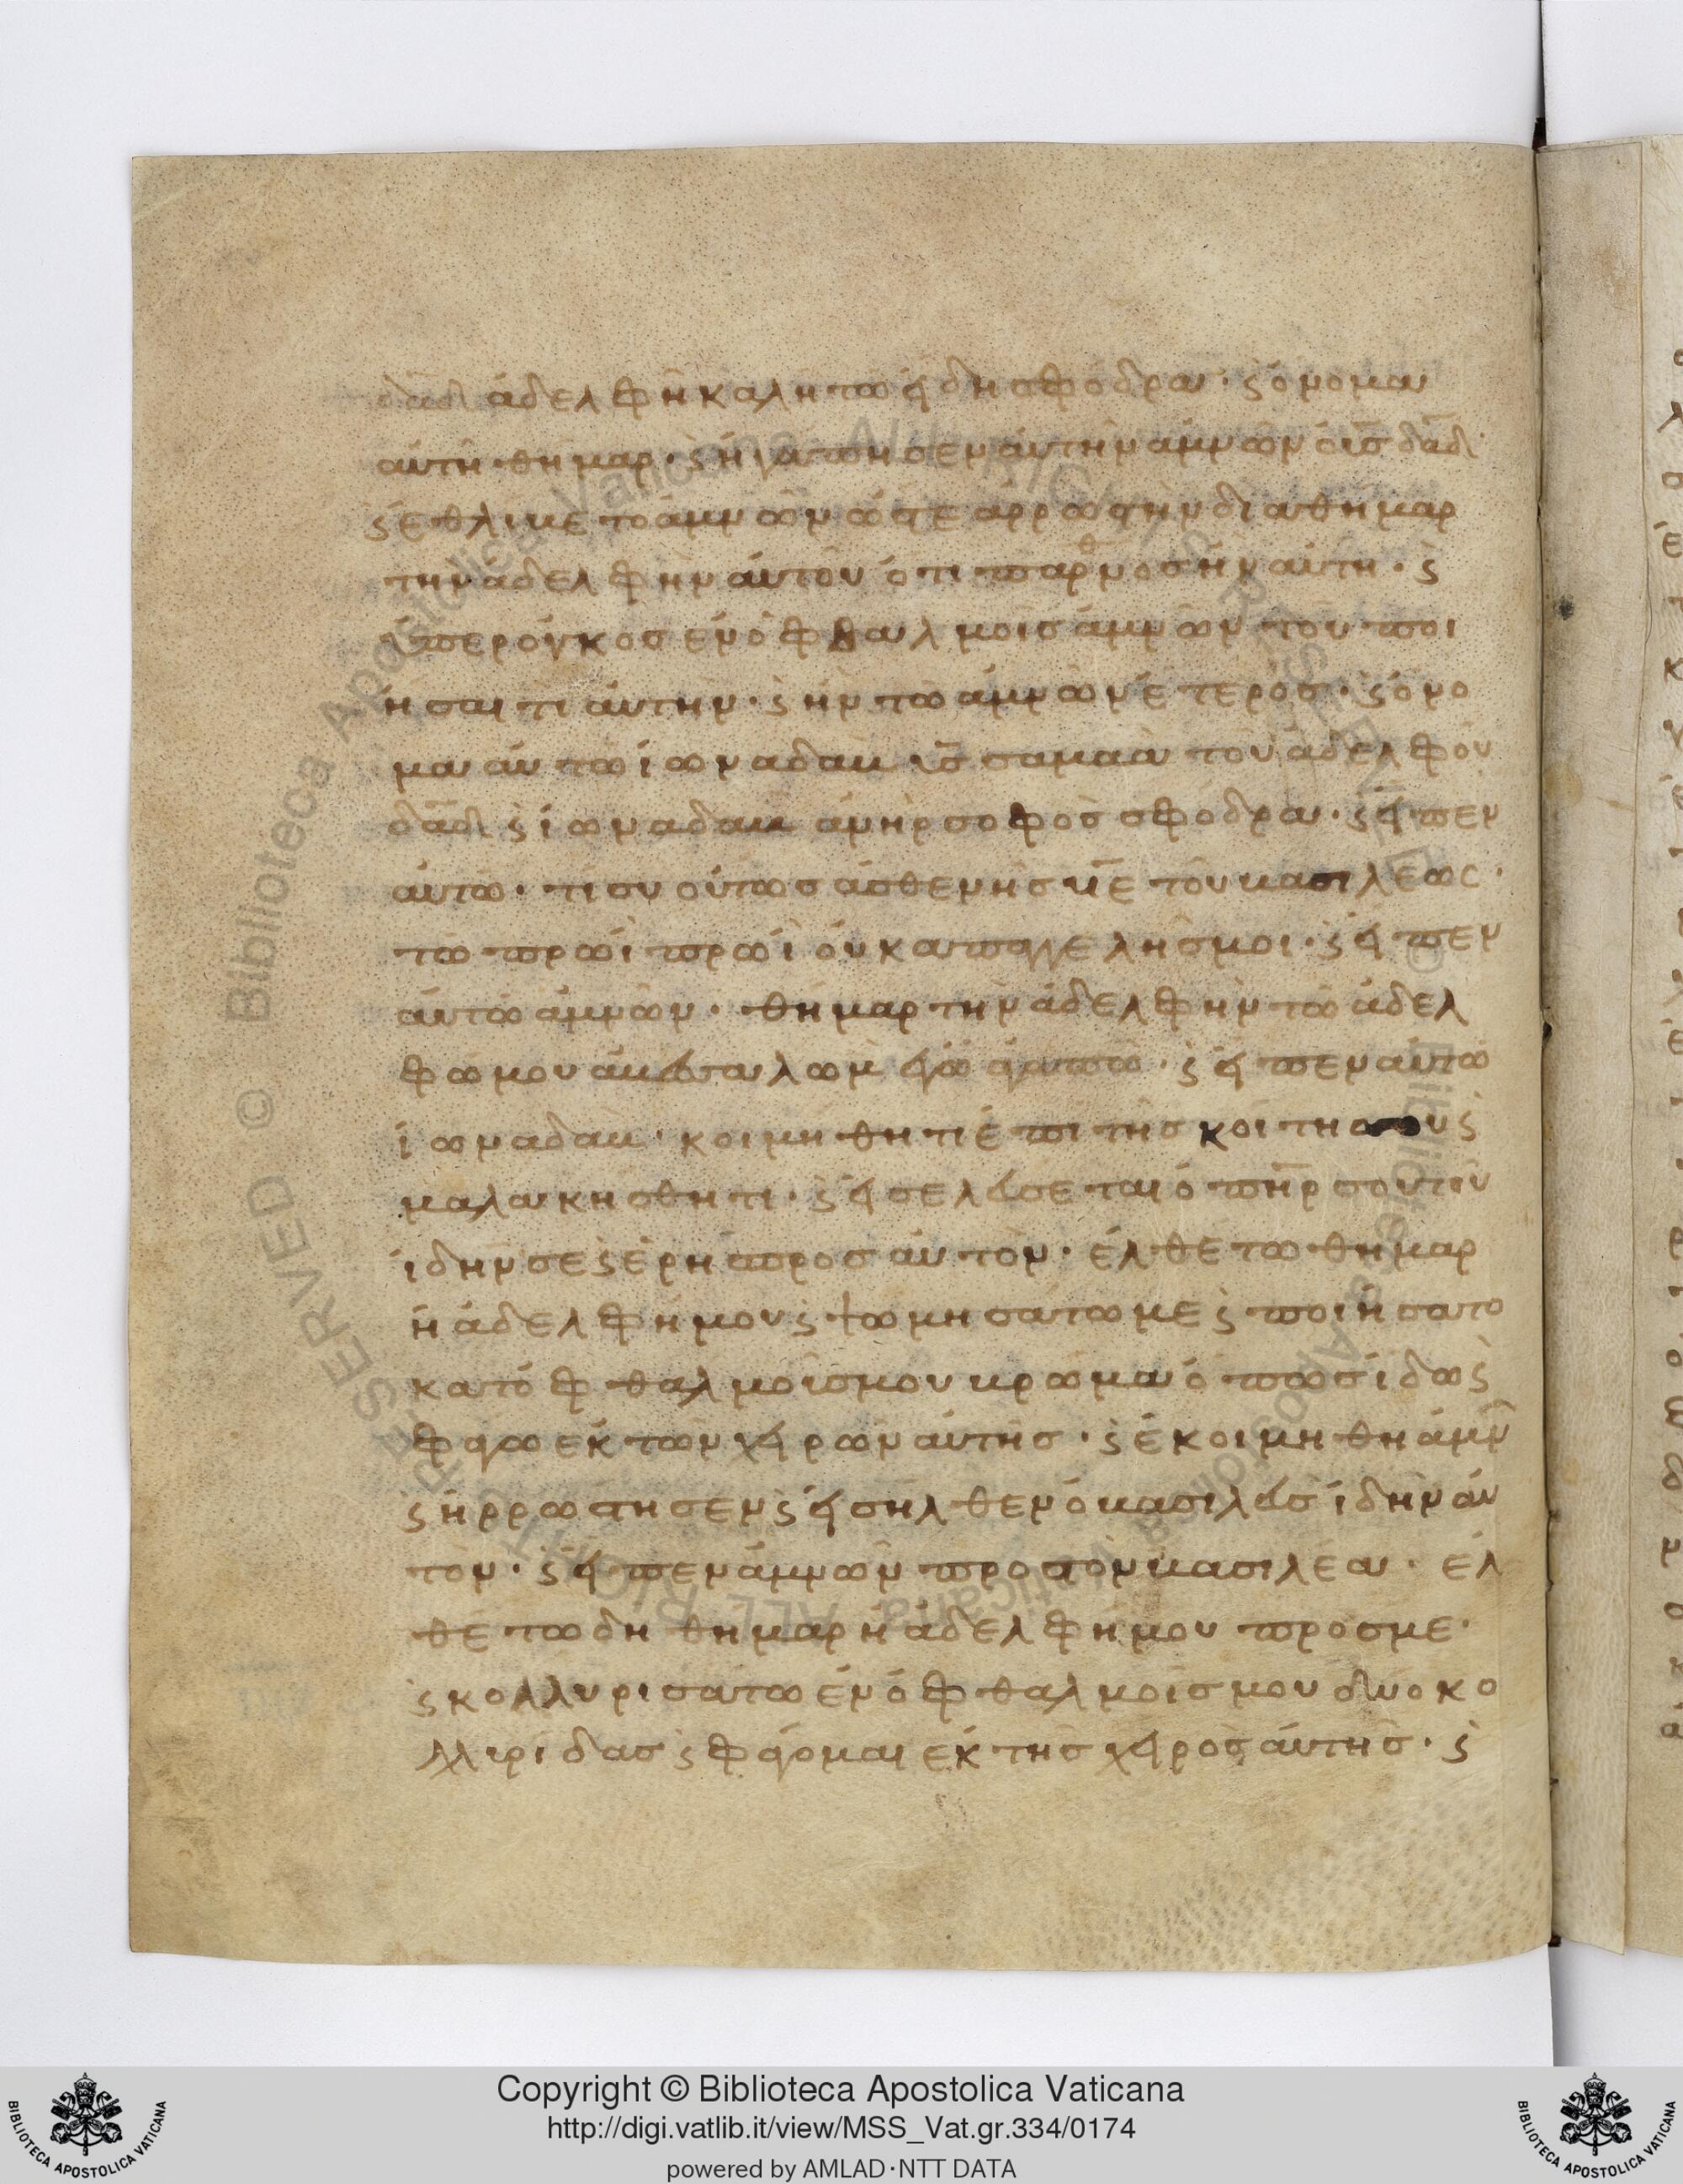 δᾱδ ἀδελφὴ καλὴ τῶ εἴδη σφόδρα · ϛ ὄνομα
αὐτῆ θημαρ · ϛ ἠγάπησεν αὐτὴν ἀμνὼν ὁ ῡσ δᾱδ ·
ϛ ἐθλίβετο ἀμνὼν ὥστε ἀρρωστὴν δια θήμαρ
τὴν ἀδελφὴν αὐτοῦ ὅτι παρθνοσ ἦν αὐτη · ϛ
ὑπερόγκοσ ἐν ὀφθαλμοῖσ ἀμνὼν τοῦ ποι
ῆσαι τὶ αὐτὴν · ϛ ἦν τῶ ἀμνὼν ἕτεροσ · ϛ ὄνο
μα αὐτῶ ἰωναδαβ ῡσ σαμαὰ τοῦ ἀδελφοῦ
δᾱδ ϛ ἰωναδαβ ἀνὴρ σοφὸσ σφόδρα · ϛ εἶπεν
αὐτῶ · τι συ οὕτωσ ἀσθενὴσ ῡε τοῦ βασιλέωσ ·
τῶ πρωῒ πρωῒ οὐκ απαγγελησ μοι · ϛ εἶπεν
αὐτῶ ἀμνὼν · θήμαρ τὴν ἀδελφὴν τῶ ἀδελ
φῶ μου ἀβεσσαλωμ ἐγὼ ἀγαπῶ · ϛ εἶπεν αὐτῶ
ἰωναδαβ · κοιμήθητι ἐπι τῆσ κοίτησ σου ϛ
μαλακήσθητι · ϛ εἰσελεύσεται ὁ πη̄ρ σου τοῦ
ἰδῆν σε ϛ ἐρῆ προσ αὐτὸν · ἐλθέτω θήμαρ
ἡ ἀδελφή μου ϛ ψωμησάτω με ϛ ποιησατο
κατ ὀφθαλμοῖσ μου βρῶμα ὅπωσ ἴδω ϛ
φάγω ἐκ τῶν χειρῶν αὐτῆσ · ϛ ἐκοιμήθη ἀμν
ϛ ἠρρώστησεν ϛ εἰσῆλθεν ὁ βασιλεὺσ ἰδῆν αὐ
τὸν · ϛ εἶπεν ἀμνὼν προσ τὸν βασιλέα · ἐλ
θέτω δη θήμαρ ἡ ἀδελφή μου πρόσ με ·
ϛ κολλυρισάτω ἐν ὀφθαλμοῖσ μου δύο κο
λλιρίδασ ϛ φάγομαι ἐκ τῆσ χειρὸσ αὐτῆσ · ϛ
Copyright © Biblioteca Apostolica Vaticana
http://digi.vatlib.it/view/MSS_Vat.gr.334/0174
powered by AMLAD·NTT DATA
BIBLIOTECA APOSTOLICA VATICANA
BIBLIOTECA APOSTOLICA VATICANA